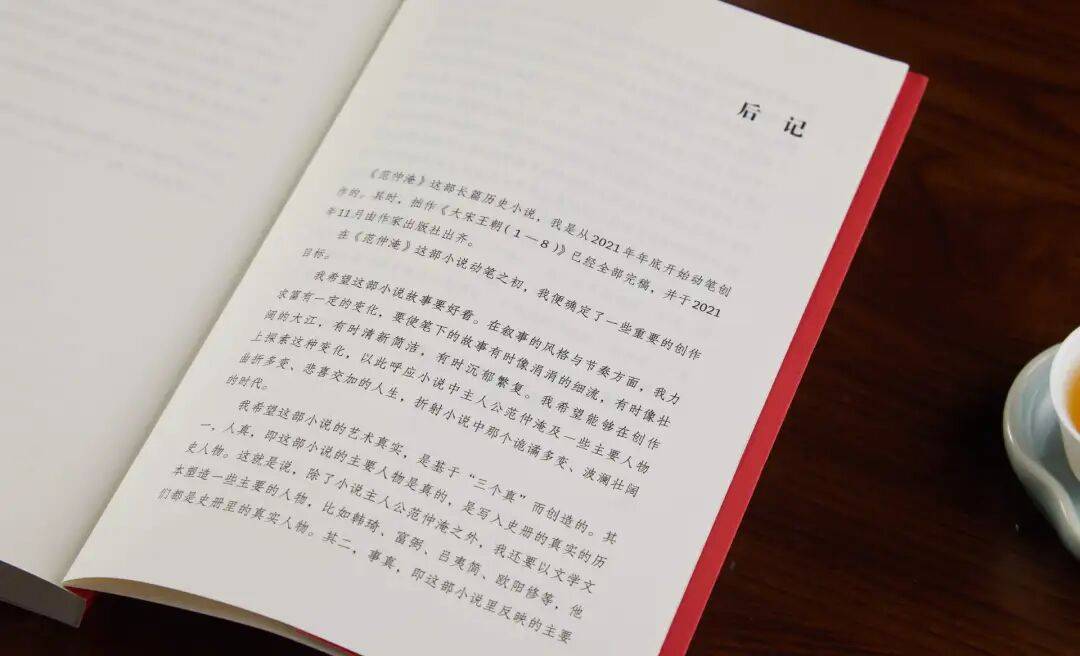 后 记
《范仲淹》这部长篇历史小说，我是从2021年年底开始动笔创
作的。其时，拙作《大宋王朝（1—8）》已经全部完稿，并于2021
年11月由作家出版社出齐。
在《范仲淹》这部小说动笔之初，我便确定了一些重要的创作
目标。
我希望这部小说故事要好看。在叙事的风格与节奏方面，我力
求富有一定的变化，要使笔下的故事有时像涓涓的细流，有时像壮
阔的大江，有时清新简洁，有时沉郁繁复。我希望能够在创作
上探索这种变化，以此呼应小说中主人公范仲淹及一些主要人物
曲折多变、悲喜交加的人生，折射小说中那个诡谲多变、波澜壮阔
的时代。
我希望这部小说的艺术真实，是基于“三个真”而创造的。其
一，人真，即这部小说的主要人物是真的，是写入史册的真实的历
史人物。这就是说，除了小说主人公范仲淹之外，我还要以文学文
本塑造一些主要的人物，比如韩琦、富弼、吕夷简、欧阳修等，他
们都是史册里的真实人物。其二，事真，即这部小说里反映的主要